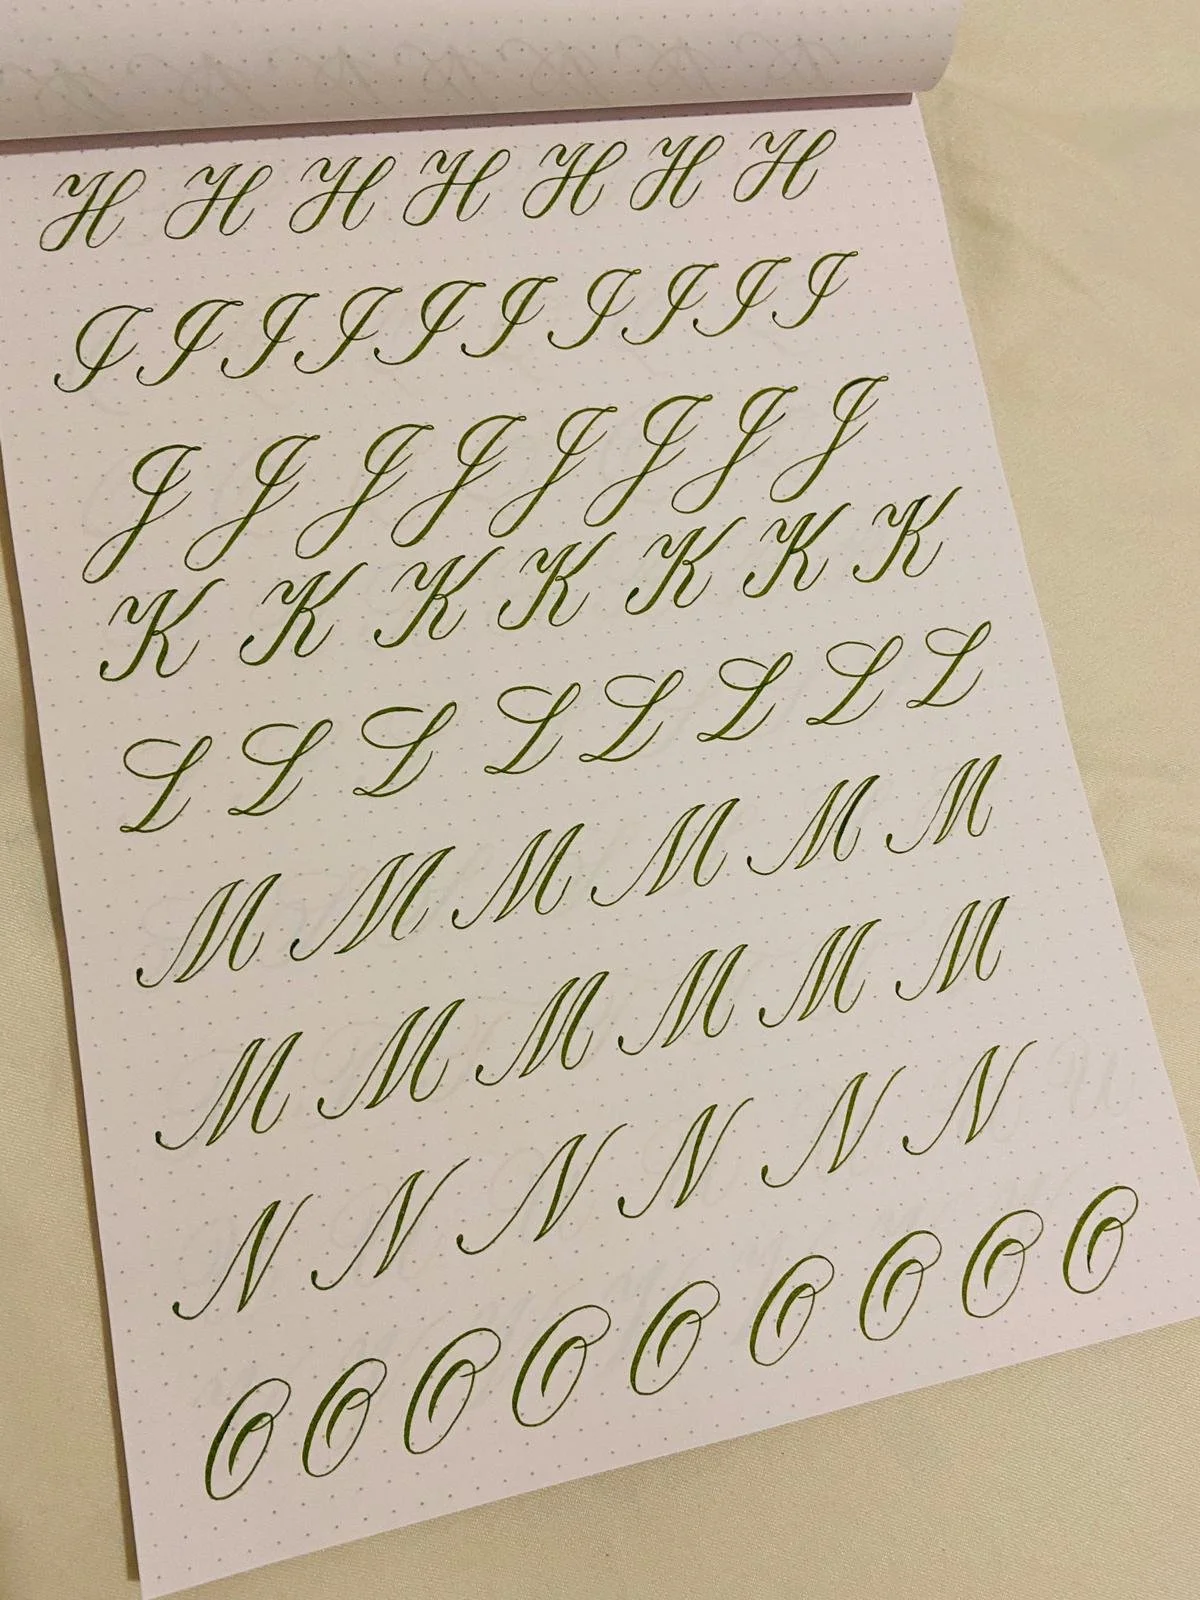 H H H H H H H
I I I I I I I I I I
J J J J J J J J
K K K K K K K
L L L L L L L L
M M M M M M
M M M M M M
N N N N N N
O O O O O O O O O